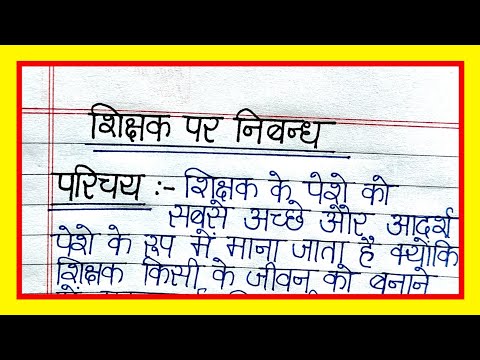 शिक्षक पर निबन्ध
परिचय :- शिक्षक के पेशे को
सबसे अच्छे और आदर्श
पेशे के रूप में माना जाता है क्योंकि
शिक्षक किसी के जीवन को बनाने